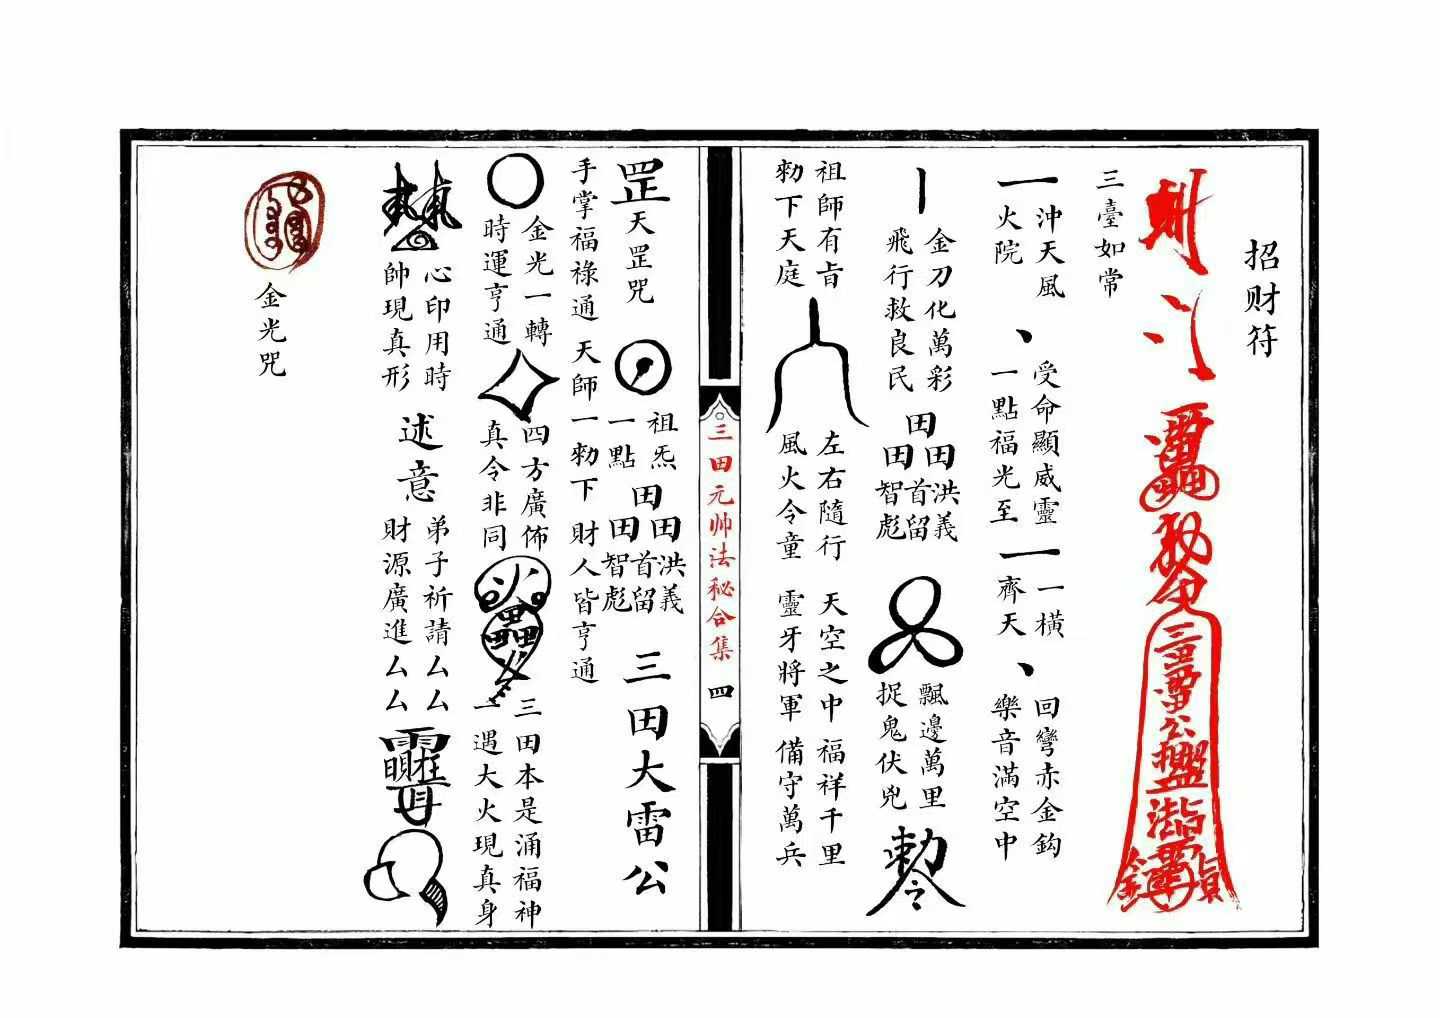 招财符
三臺如常
一
沖天風
火院
丶
受命顯威靈
一點福光至
一
一橫
齊天
丶
回彎赤金鈎
樂音滿空中
丨
金刀化萬彩
飛行救良民
田
田田
洪義
首留
智彪
飄邊萬里
捉鬼伏兇
勅令
祖師有旨
勑下天庭
左右隨行
風火令童
天空之中
靈牙將軍
福祥千里
備守萬兵
三田元帅法秘合集
四
罡
天罡咒
祖炁
一點
田
田田
洪義
首留
智彪
三田大雷公
手掌福祿通
天師一勑下
財人皆亨通
金光一轉
時運亨通
四方廣佈
真令非同
三田本是涌福神
一遇大火現真身
心印用時
帥現真形
述意
弟子祈請厶厶
財源廣進厶厶
金光咒